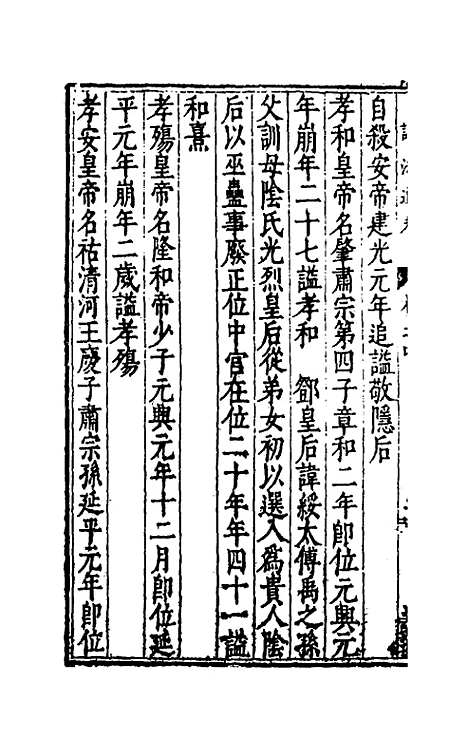 自殺安帝建光元年追謚敬隱后
孝和皇帝名肇肅宗第四子章和二年卽位元興元
年崩年二十七謚孝和　鄧皇后諱綏太傅禹之孫
父訓母陰氏光烈皇后從弟女初以選入爲貴人陰
后以巫蠱事廢正位中宮在位二十年年四十一謚
和熹
孝殤皇帝名隆和帝少子元興元年十二月卽位延
平元年崩年二歲謚孝殤
孝安皇帝名祜清河王慶子肅宗孫延平元年卽位